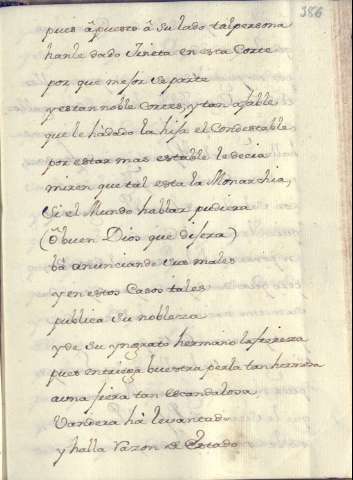 386
pues á puesto á su lado tal persona
hanle dado Gineta en esta Corte
por que mejor se parte
y es tan noble Cortes, y tan afable
que le hà dado la hija el Condestable
por estar mas estable le decia
miren que tàl esta la Monarchia,
Si el Mundo hablar pudiera
(ô buen Dios que dijera)
bà anunciando sus males
y en estos Casos tales
publica su nobleza
y de su yngrato hermano la fiereza
pues entrega buestra perla tan
a una fiera tan escandalosa
Vandera hà levantado
y halla Razon de Estado